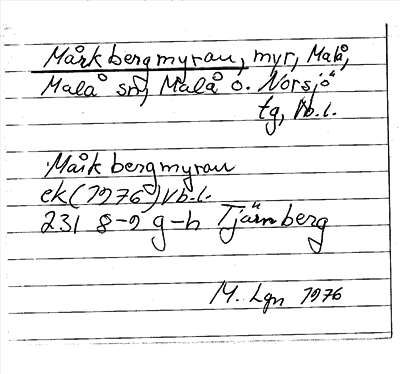 Mårkbergmyran, myr, Malå,
Malå sn, Malå o. Norsjö
tg, Vb.l.
Mårkbergmyran
ek (1976) Vb.l.
231 8-9 g-h Tjärnberg
M. Lgn 1976